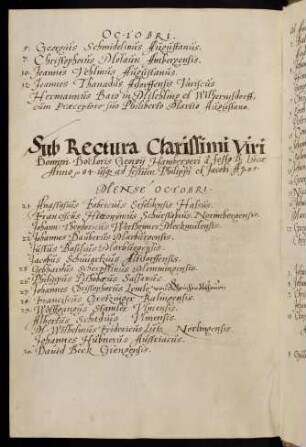 OCTOBRI.
5. Georgius Schmidelinus Augustanus.
7. Christophorus Molaun Ambergensis.
10. Joannes Vehlinus Augustanus.
12. Joannes Thanadas Adorffensis Variscus
Hermannus Baro in Milchling et Wilhermsdorff,
cum Præceptore suo Philiberto Martio Augustano.
Sub Rectura Clarissimi Viri
Domini Doctoris Georgij Hambergeri à festo D. Lucæ
Anno 84 usq; ad festum Philippi et Jacobi A° 85
MENSE OCTOBRI
21. Anastasius Fabricius Hassus.
Franciscus Hieronymus Schürstabius Noribergensis.
Johann Theodoricus Meckmülensis.
22. Johannes Dauberus Marburgensis.
Justus Basilius Marburgensis.
Jacobus Altdorffensis.
25. Gebhardus Memmingensis.
26. Philippus Sultanus.
27. Johannes Christophorus
28. Franciscus Gretzinger
29. Wolfgangus Stamler Vimensis.
Albertus Schadius Vimensis.
M. Wilhelmus Fridericus Lutz Norlingensis.
Johannes Hübnerus Austriacus.
30. David Beck Giengensis.